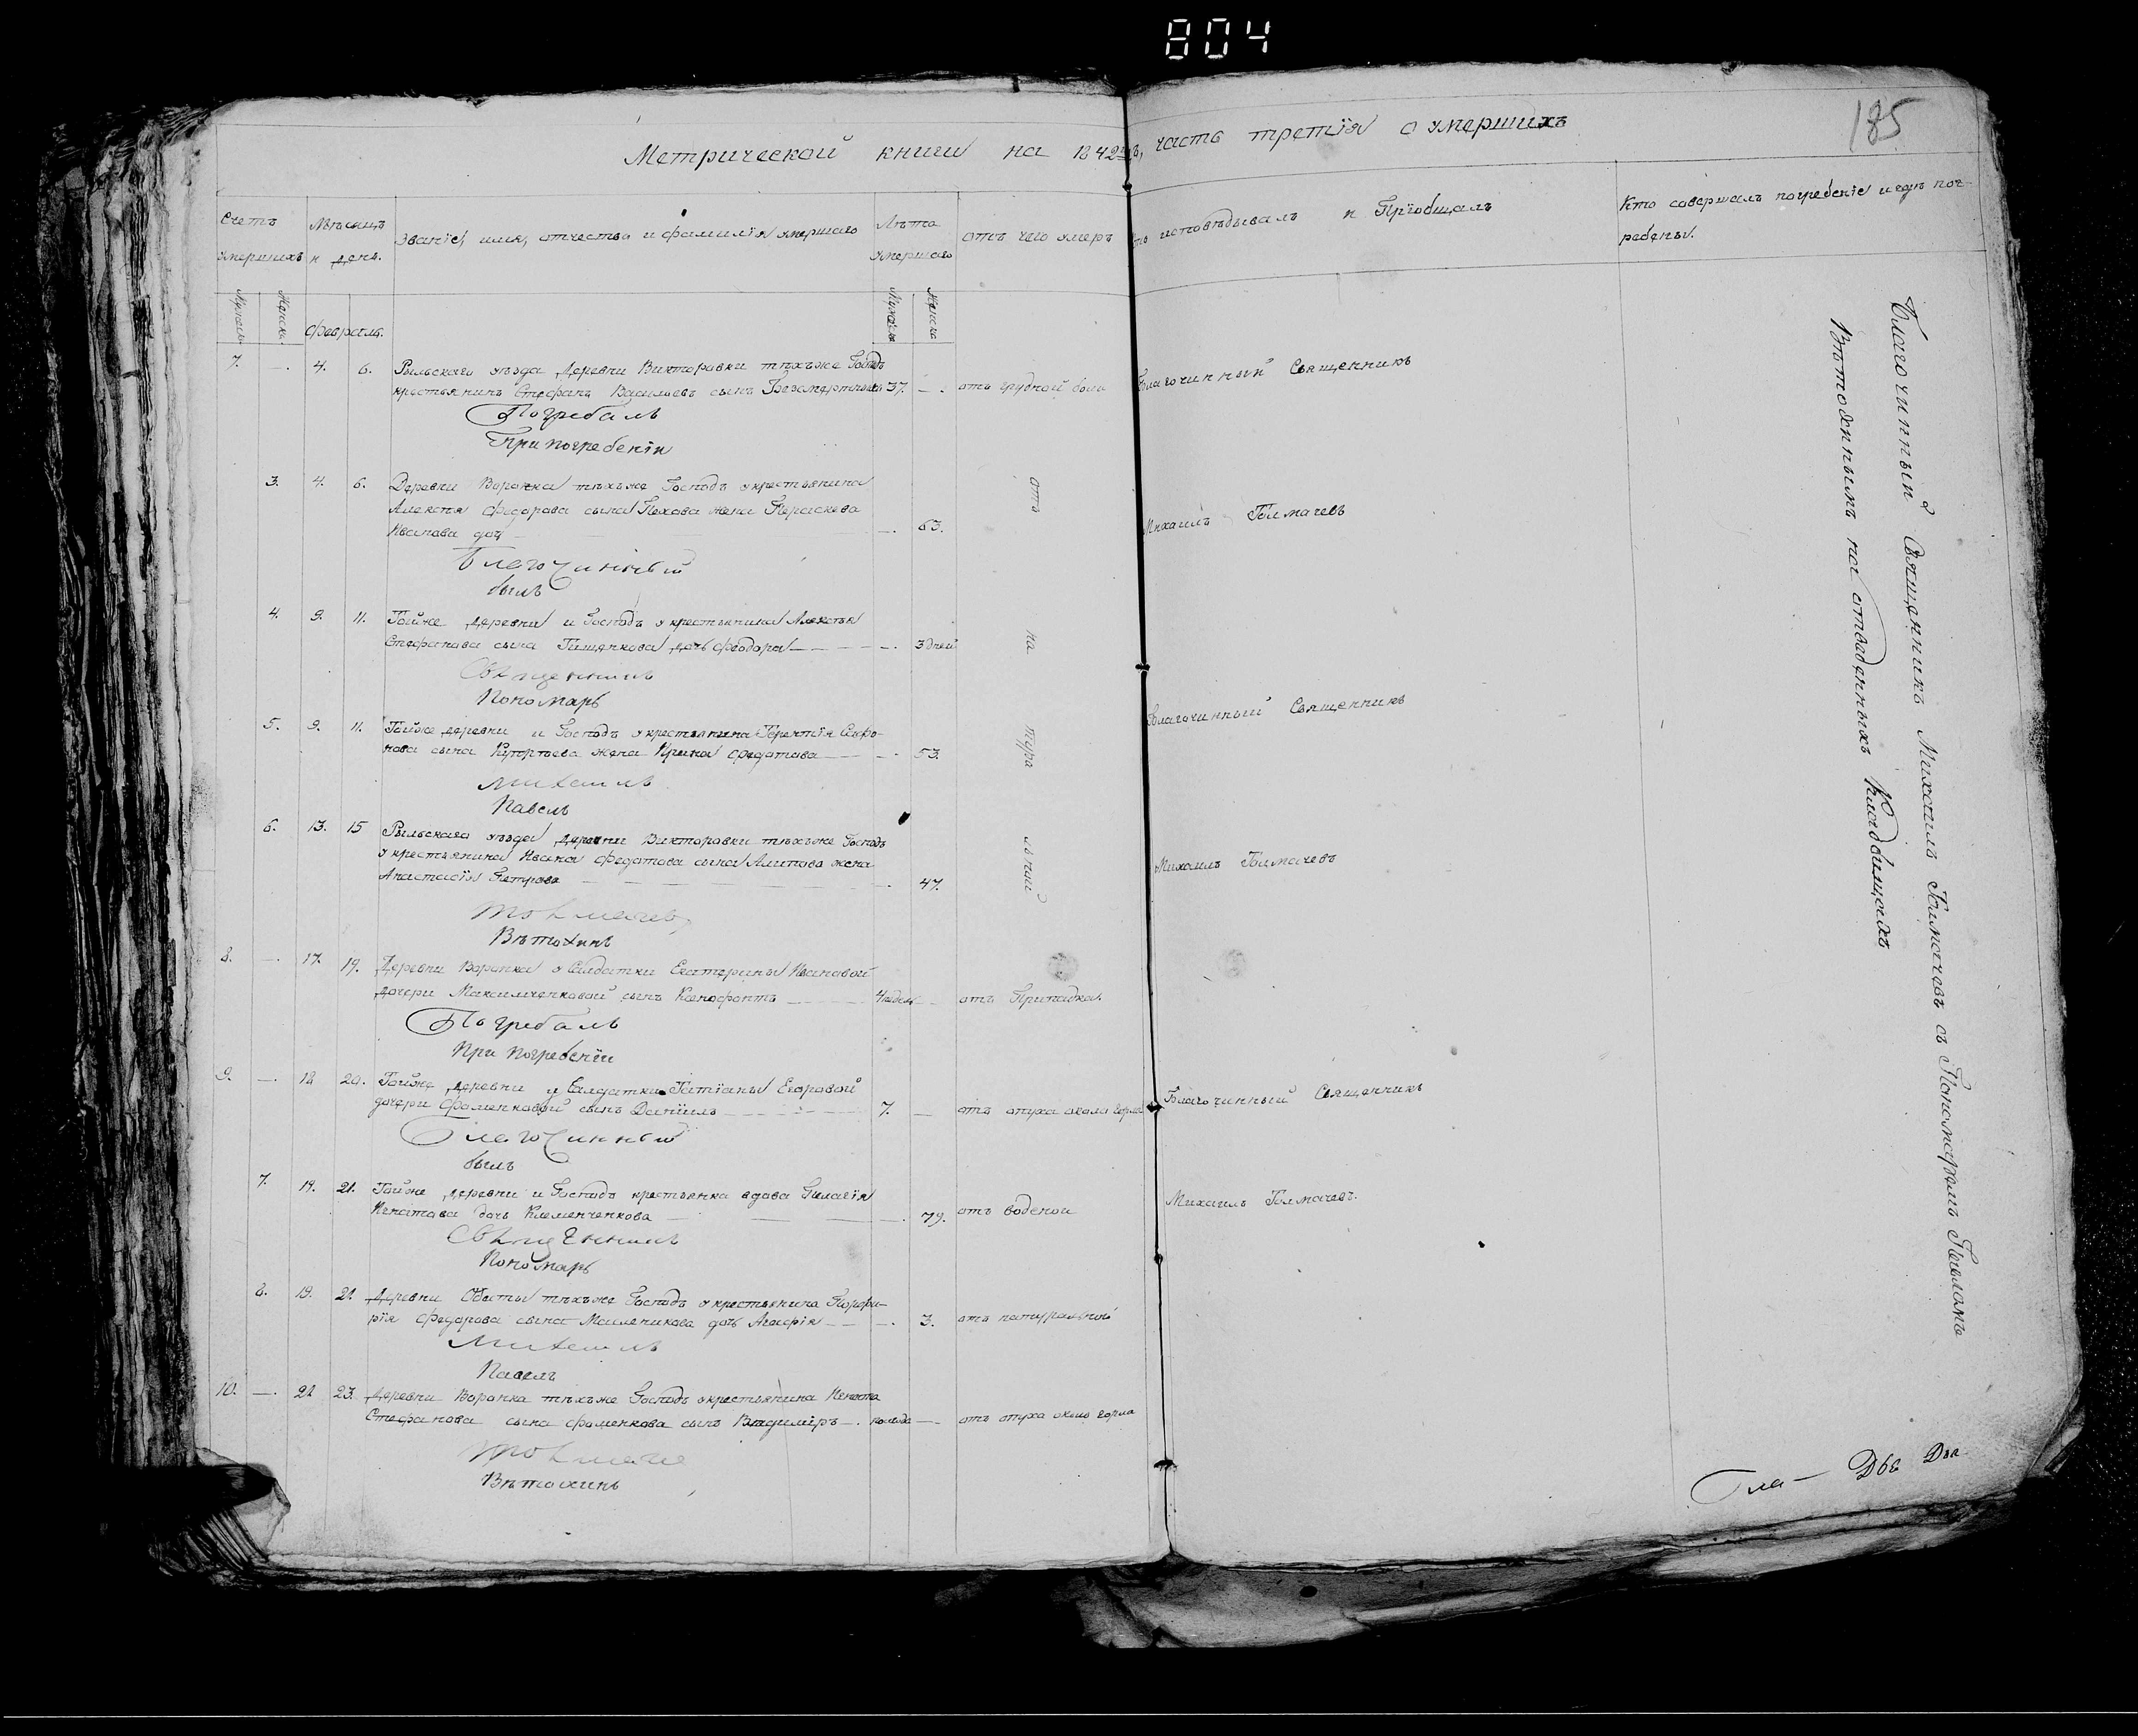 804
185
Метрической книги на 1842 г., часть третія о умершихъ
Счетъ умершихъ
Мѣсяцъ и день.
Званіе, имя, отчество и фамилія умершаго
Лѣта умершаго
отъ чего умеръ
Кто исповѣдывалъ и Пріобщалъ
Кто совершалъ погребеніе и гдѣ погребены.
Мужеска
Женска
Февраль.
Мужеска
Женска
7. —. 4. 6. Рыльскаго уѣзда Деревни Викторовки тѣхъже Господъ
крестьянинъ Стефанъ Васильевъ сынъ Безсмертный 37. —. отъ грудной боли Благочинный Священникъ
Погребалъ
При погребеніи
3. 4. 6. Деревни Воронка тѣхъже Господъ у крестьянина
Алексѣя Федорова сына Пехова жена Параскева
Иванова доч —. 63. Михаилъ Толмачевъ
Благочинный
былъ
4. 9. 11. Тойже деревни и Господъ у крестьянина Алексѣя
Стефанова сына Тищенкова дочь Феодора —. 3 дней
Священникъ
Пономарь
5. 9. 11. Тойже деревни и Господъ у крестьянина Терентія Софро-
нова сына жена Ирина Федотова —. 53. Благочинный Священникъ
Михаилъ
Павелъ
6. 13. 15 Рыльскаго уѣзда деревни Викторовки тѣхъже Господъ
у крестьянина Ивана Федотова сына Алипова жена
Анастасія Петрова —. 47. Михаилъ Толмачевъ
отъ натуральной
Толмачевъ
Вѣтохинъ
8. —. 17. 19. Деревни Воронка у Салдатки Екатерины Ивановой
дочери Максимченковой сынъ Ксенофонтъ 4 недел — отъ Припадка.
Погребалъ
При погребеніи
9. —. 18 20. Тойже деревни у Салдатки Татіаны Егоровой
дочери Фоменковой сынъ Даніилъ 7. — отъ опуха около горла Благочинный Священникъ
Благочинный
былъ
7. 19. 21. Тойже деревни и Господъ крестьянка вдова Гилагія
Игнатова дочь Клеменченкова —. 79. отъ воденой Михаилъ Толмачевъ.
Священникъ
Пономарь
8. 19. 21. Деревни Обесты тѣхъже Господъ у крестьянина Порфи-
рія Федорова сына Масленикова дочь Агафія —. 3. отъ натуральной
Михаилъ
Павелъ
10. —. 21 23. Деревни Воронка тѣхъже Господъ у крестьянина Игната
Стефанова сына Фоменкова сынъ Владиміръ —. полгода — отъ опуха около горла
Толмаче
Вѣтохинъ
Благочинный Священникъ Михаилъ Толмачевъ съ Пономаремъ Павломъ
Вѣтохинымъ на отведенныхъ Кладбищахъ
Бла— Двѣ Дѣл